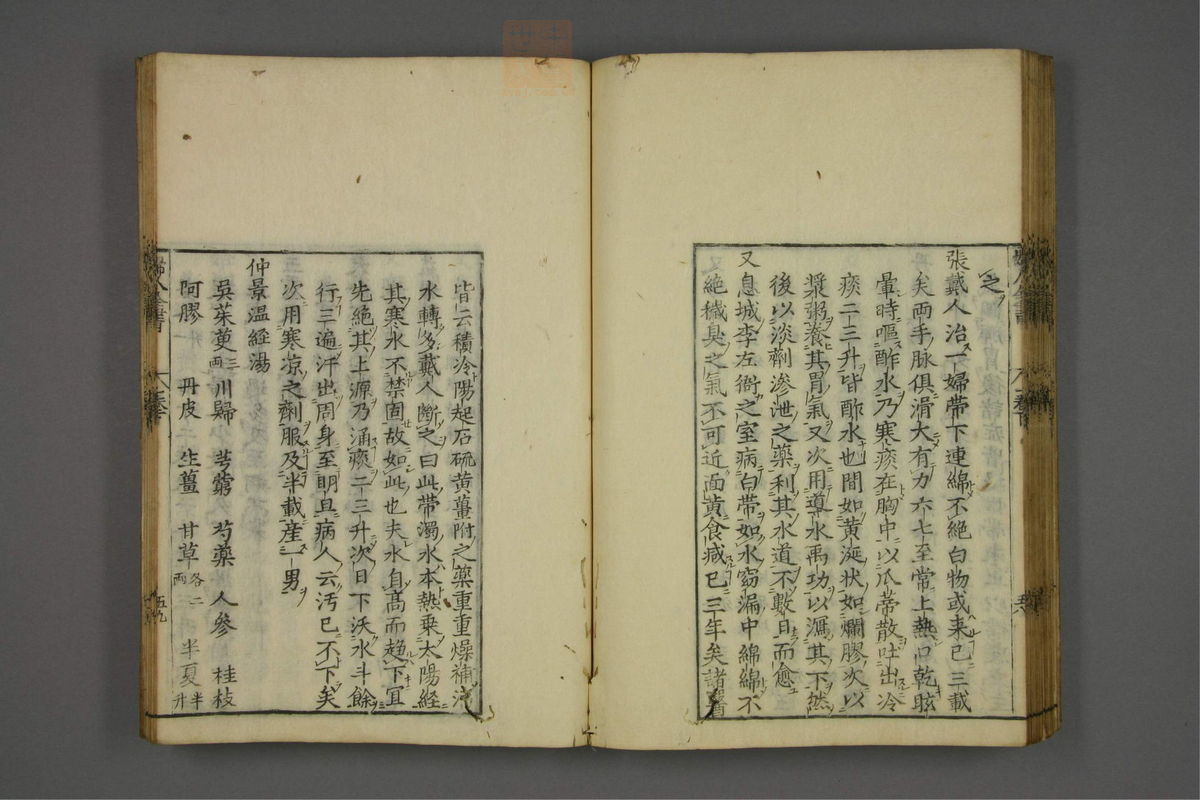 之
張戴人治一婦帶下連綿不絶白物或来已三載
矣両手脉俱滑大有力六七至常上熱口乾眩
暈時嘔酢水乃寒痰在胸中以瓜蒂散吐出冷
痰二三升皆酢水也間如黄涎状如爛膠次以
漿粥養其胃氣又次用導水禹功以瀉其下然
後以淡劑滲泄之藥利其水道不數日而愈
又息城李左衙之室病白帯如水窈漏中綿綿不
絶穢臭之氣不可近面黄食减已三年矣諸醫
皆云積冷陽起石硫黄薑附之藥重重燥補汚
水轉多戴人断之曰此帯濁水本熱乗太陽経
其寒水不禁固故如此也夫水自髙而趋下宜
先絶其上源乃涌痰二三升次日下沃水斗餘
行三遍汗出周身至明旦病人云汚已不下矣
次用寒凉之劑服及半載産一男
仲景温經湯
吳茱萸三両 川歸 芎藭 芍藥 人參 桂枝
阿膠 丹皮 生薑 甘草各二両 半夏半升
婦人全書
五九